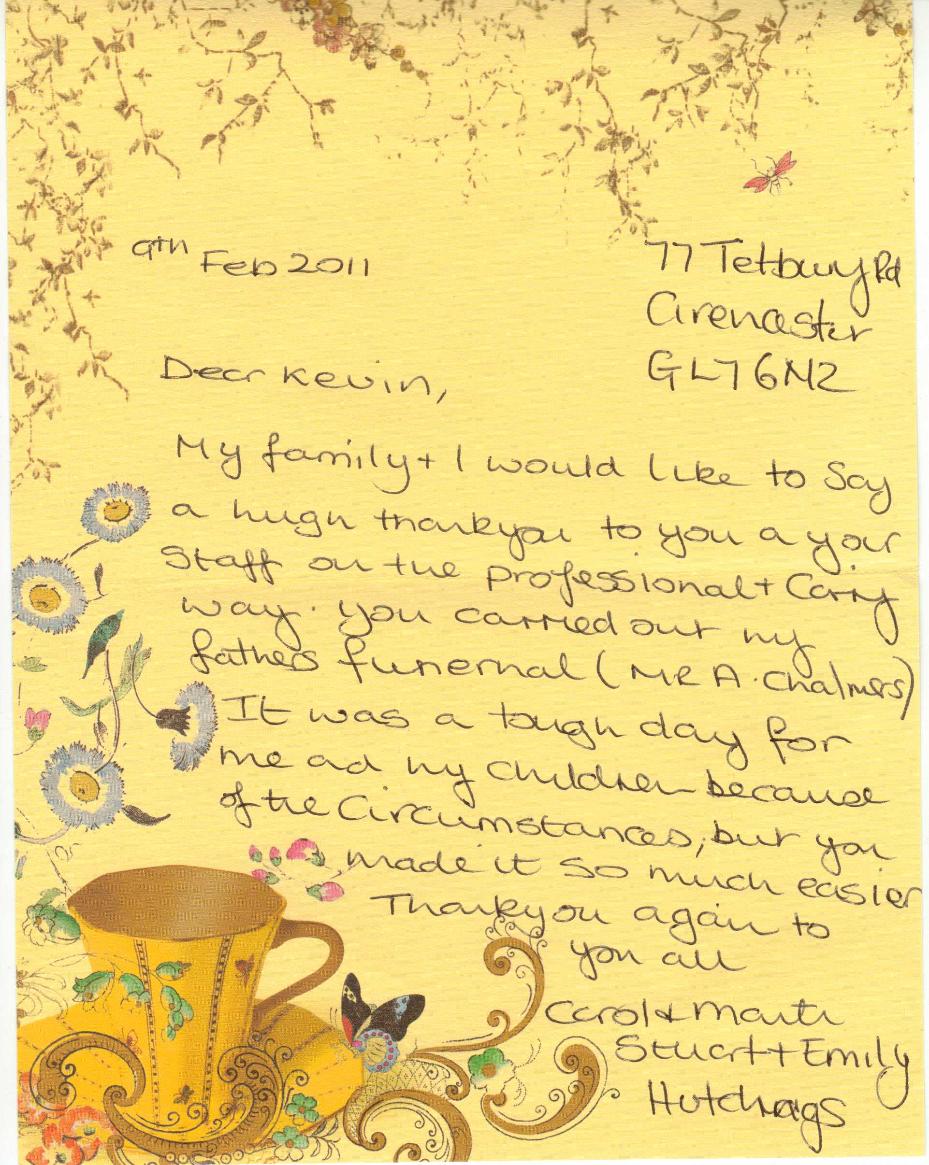 9th Feb 2011
77 Tetbury Rd
Cirencester
GL7 6NZ
Dear Kevin,
My family + I would like to say
a hugh thankyou to you a your
staff on the professional + Caring
way. you carried out my
fathers funernal (MR A. Chalmers)
It was a tough day for
me ad my children because
of the Circumstances, but you
made it so much easier
Thankyou again to
you all
Carol &
Stuart + Emily